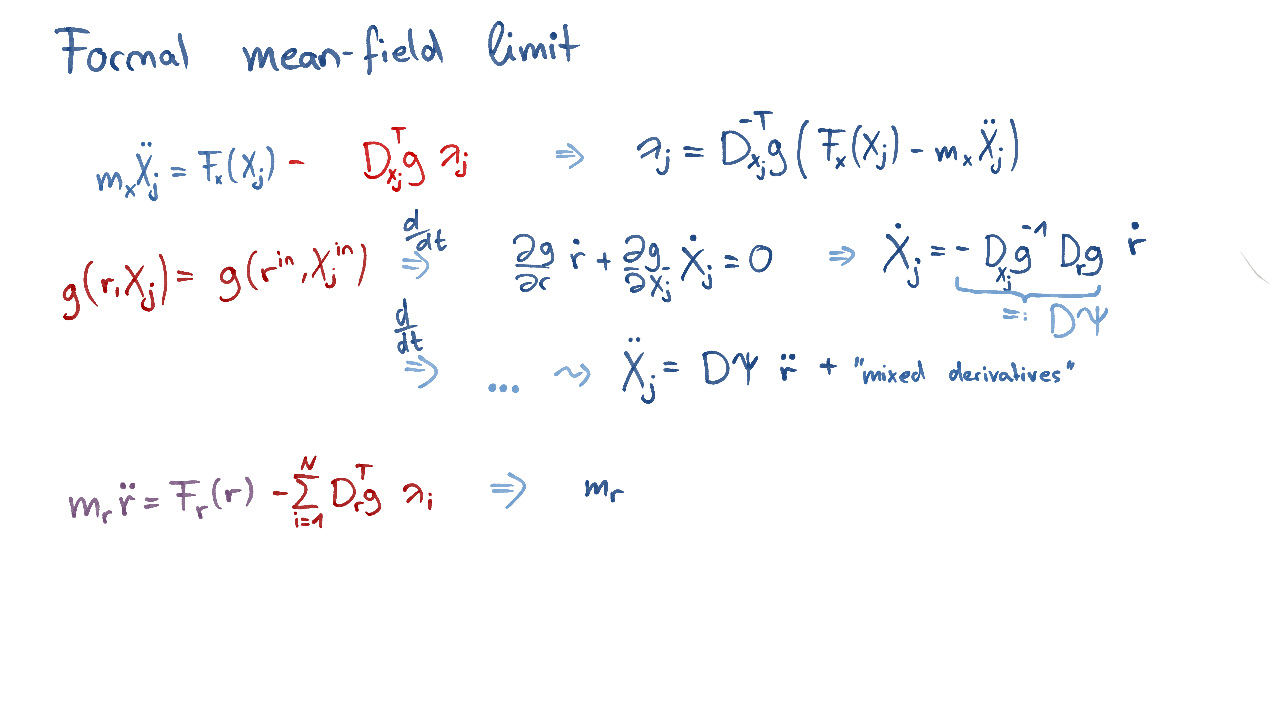 Formal mean-field limit
m_x Ẍ_j = F_x(X_j) - D_{x_j}^T g λ_j ⇒ λ_j = D_{x_j}^{-T} g ( F_x(X_j) - m_x Ẍ_j )
g(r, X_j) = g(r^{in}, X_j^{in}) d/dt ⇒ ∂g/∂r ṙ + ∂g/∂X_j Ẋ_j = 0 ⇒ Ẋ_j = - D_{x_j} g^{-1} D_r g ṙ
=: DΨ
d/dt ⇒ ... ⇝ Ẍ_j = DΨ r̈ + "mixed derivatives"
m_r r̈ = F_r(r) - ∑_{i=1}^N D_r^T g λ_i ⇒ m_r